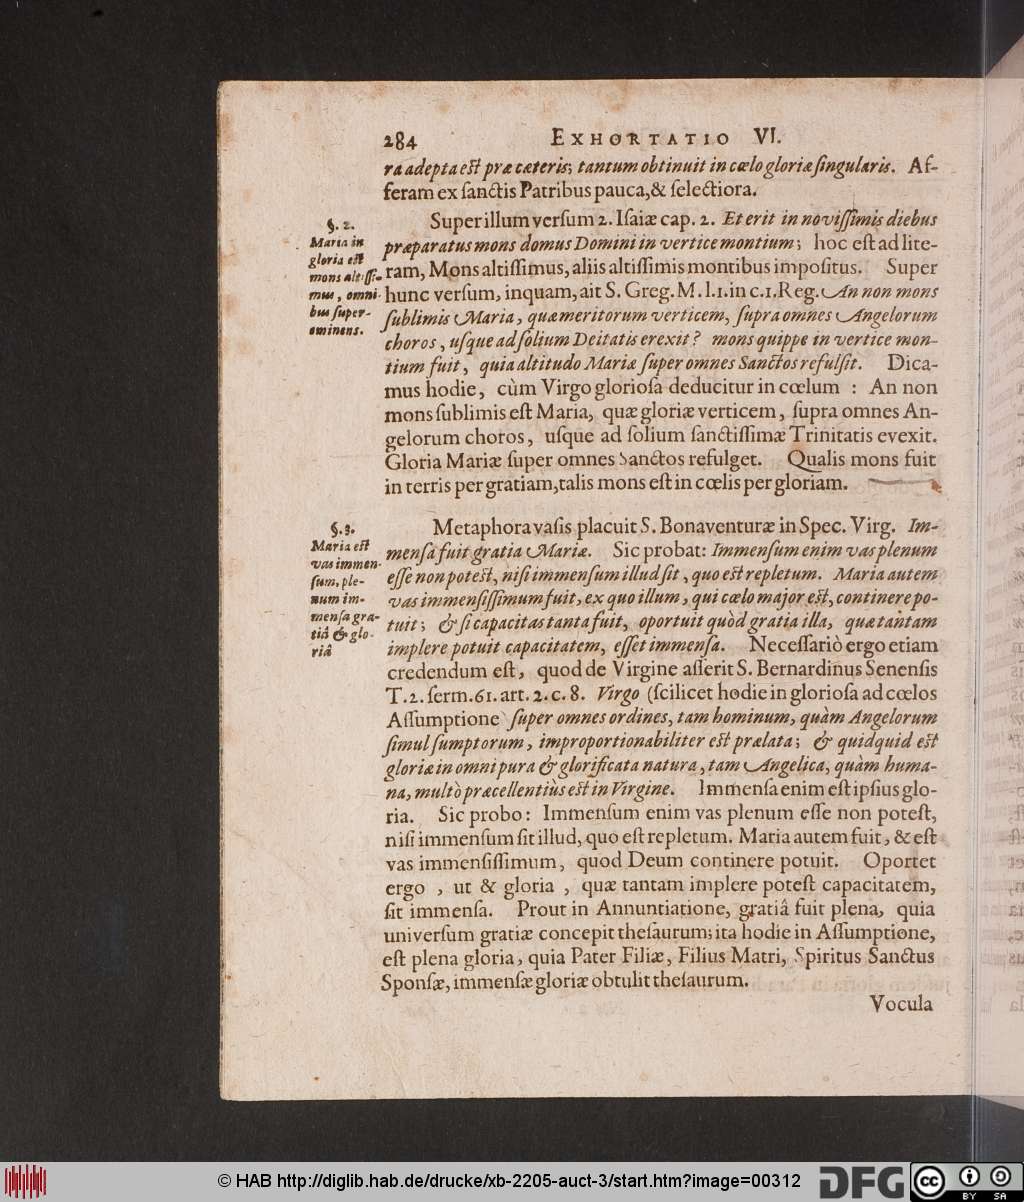 284 EXHORTATIO VI.
ra adepta est præ cæteris; tantum obtinuit in cælo gloriæ singularis. Af-
feram ex sanctis Patribus pauca, & selectiora.
§. 2.
Maria in
gloria est
mons altissi-
mus, omni-
bus super-
eminens.
Super illum versum 2. Isaiæ cap. 2. Et erit in novissimis diebus
præparatus mons domus Domini in vertice montium; hoc est ad lite-
ram, Mons altissimus, aliis altissimis montibus impositus. Super
hunc versum, inquam, ait S. Greg. M. l.1. in c.1. Reg. An non mons
sublimis Maria, quæ meritorum verticem, supra omnes Angelorum
choros, usque ad solium Deitatis erexit? mons quippe in vertice mon-
tium fuit, quia altitudo Mariæ super omnes Sanctos refulsit. Dica-
mus hodie, cùm Virgo gloriosa deducitur in cœlum : An non
mons sublimis est Maria, quæ gloriæ verticem, supra omnes An-
gelorum choros, usque ad solium sanctissimæ Trinitatis evexit.
Gloria Mariæ super omnes Sanctos refulget. Qualis mons fuit
in terris per gratiam, talis mons est in cœlis per gloriam.
§. 3.
Maria est
vas immen-
sum, ple-
num im-
mensa gra-
tiâ & glo-
riâ
Metaphora vasis placuit S. Bonaventuræ in Spec. Virg. Im-
mensa fuit gratia Mariæ. Sic probat: Immensum enim vas plenum
esse non potest, nisi immensum illud sit, quo est repletum. Maria autem
vas immensissimum fuit, ex quo illum, qui cælo major est, continere po-
tuit; & si capacitas tanta fuit, oportuit quòd gratia illa, quæ tantam
implere potuit capacitatem, esset immensa. Necessariò ergo etiam
credendum est, quod de Virgine asserit S. Bernardinus Senensis
T. 2. serm. 61. art. 2. c. 8. Virgo (scilicet hodie in gloriosa ad cœlos
Assumptione) super omnes ordines, tam hominum, quàm Angelorum
simul sumptorum, improportionabiliter est prælata; & quidquid est
gloriæ in omni pura & glorificata natura, tam Angelica, quàm huma-
na, multò præcellentiùs est in Virgine. Immensa enim est ipsius glo-
ria. Sic probo: Immensum enim vas plenum esse non potest,
nisi immensum sit illud, quo est repletum. Maria autem fuit, & est
vas immensissimum, quod Deum continere potuit. Oportet
ergo , ut & gloria , quæ tantam implere potest capacitatem,
sit immensa. Prout in Annuntiatione, gratiâ fuit plena, quia
universum gratiæ concepit thesaurum; ita hodie in Assumptione,
est plena gloria, quia Pater Filiæ, Filius Matri, Spiritus Sanctus
Sponsæ, immensæ gloriæ obtulit thesaurum.
Vocula
© HAB http://diglib.hab.de/drucke/xb-2205-auct-3/start.htm?image=00312
DFG
cc
BY SA